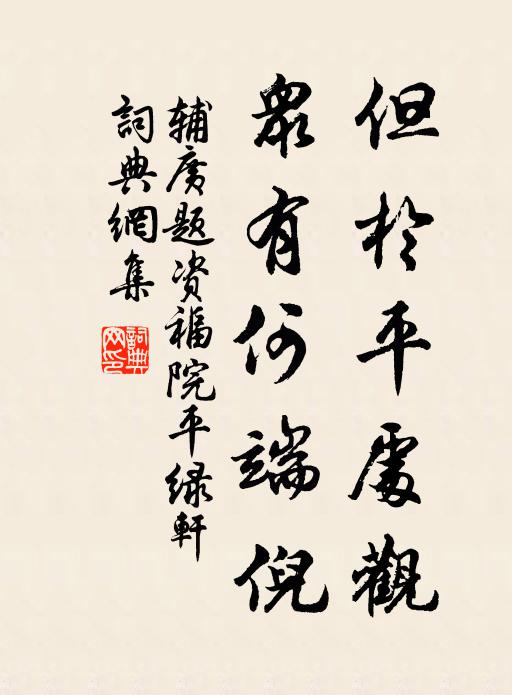 但於平處觀
衆有何端倪
辅廣题资福院平緑軒
詞典網集
詞典網印